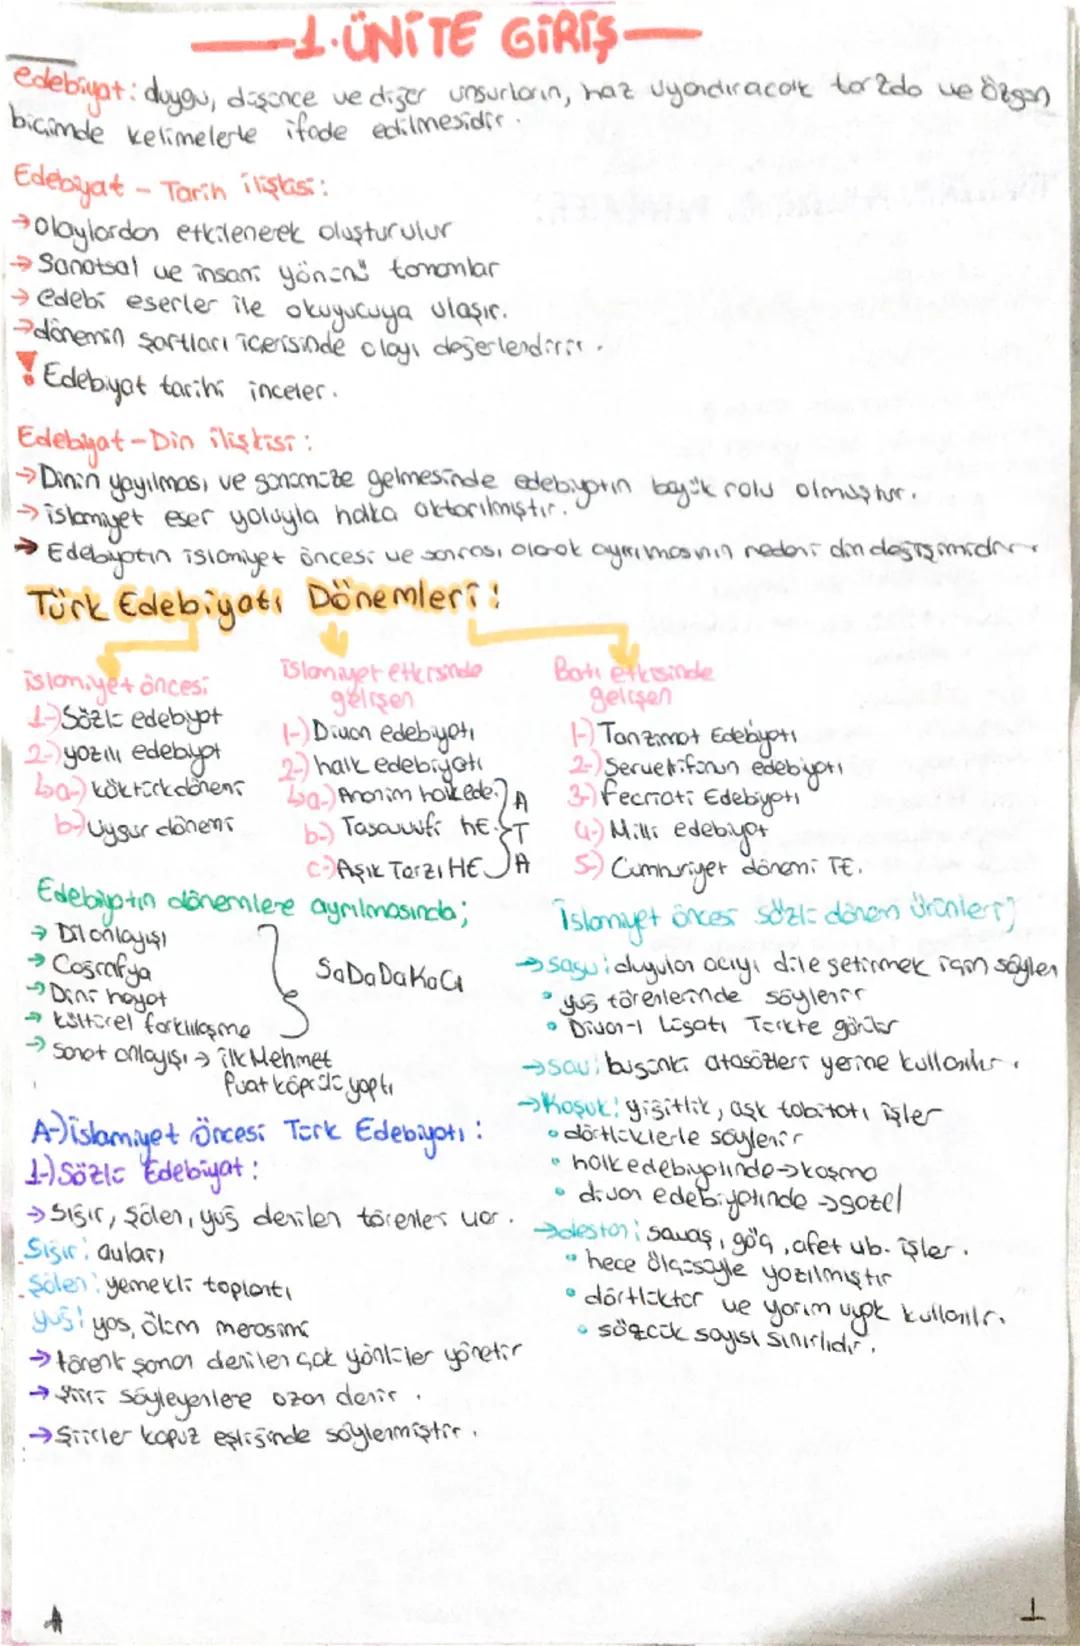 1.ÜNİTE GİRİŞ
edebiyat: duygu, düşünce ve diğer unsurların, haz uyandıracak tarzda ve özgün
biçimde kelimelerle ifade edilmesidir.
Edebiyat - Tarih ilişkisi:
→ Olaylardan etkilenerek oluşturulur
→ Sanatsal ve insani yönünü tamamlar
→ edebi eserler ile okuyucuya ulaşır.
→ dönemin şartları içerisinde olayı değerlendirir.
! Edebiyat tarihi inceler.
Edebiyat-Din ilişkisi:
→ Dinin yayılması ve günümüze gelmesinde edebiyatın büyük rolü olmuştur.
→ islamiyet eser yoluyla halka aktarılmıştır.
→ Edebiyatın islamiyet öncesi ve sonrası olarak ayrılmasının nedeni din değişimidir
Türk Edebiyatı Dönemleri:
islamiyet öncesi
1-) Sözlü edebiyat
2-) yazılı edebiyat
↳ a-) köktürk dönemi
b-) Uygur dönemi
islamiyet etkisinde
gelişen
1-) Divan edebiyatı
2-) halk edebiyatı
↳ a-) Anonim halk ede. A
b-) Tasavvufi hE. T
c-) Aşık Tarzı HE A
Batı etkisinde
gelişen
1-) Tanzimat Edebiyatı
2-) Servetifünun edebiyatı
3-) Fecriati Edebiyatı
4-) Milli edebiyat
5-) Cumhuriyet dönemi TE.
Edebiyatın dönemlere ayrılmasında;
→ Dil anlayışı
→ Coğrafya
→ Dini hayat
→ kültürel farklılaşma
→ Sanat anlayışı → ilk Mehmet
fuat köprülü yaptı
SaDaDaKaCı
A-) islamiyet Öncesi Türk Edebiyatı:
1-) Sözlü Edebiyat:
→ Sığır, Şölen, yuğ denilen törenler var.
Sığır: avları
Şölen: yemekli toplantı
yuğ: yas, ölüm merasimi
→ törenk şaman denilen çok yönlüler yönetir
→ Şiiri söyleyenlere ozan denir.
→ Şiirler kopuz eşliğinde söylenmiştir.
İslamiyet öncesi sözlü dönem ürünleri;
→ sagu: duyulan acıyı dile getirmek için söylen
• yuğ törenlerinde söylenir
• Divan-ı Lügatı Türkte görülür
→ sav: bugünkü atasözleri yerine kullanılır.
→ Koşuk: yiğitlik, aşk tabiatı işler
• dörtlüklerle söylenir
• halk edebiyatında → koşma
• divan edebiyatında → gazel
→ destan: savaş, göç, afet vb. işler.
• hece ölçüsüyle yazılmıştır
• dörtlüktür ve yarım uyak kullanılır.
• sözcük sayısı sınırlıdır.
1